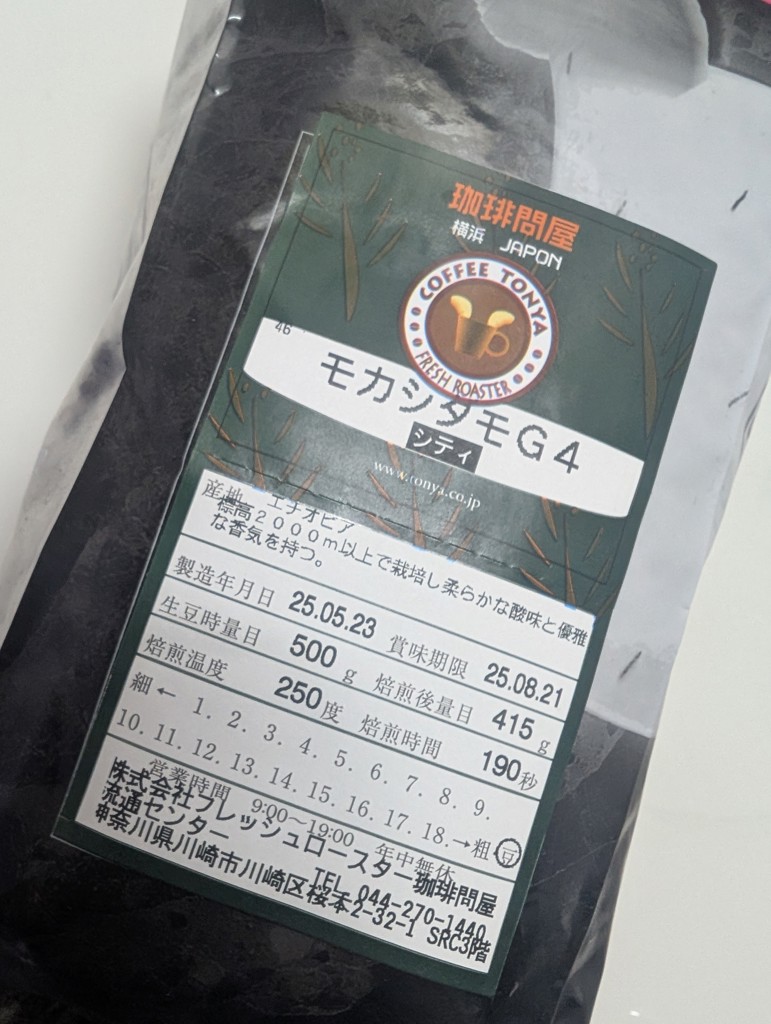 珈琲問屋
横浜 JAPON
COFFEE TONYA
FRESH ROASTER
46
モカシダモG4
シティ
www.tonya.co.jp
産地 エチオピア
標高2000m以上で栽培し柔らかな酸味と優雅
な香気を持つ。
製造年月日 25.05.23 賞味期限 25.08.21
生豆時量目 500g 焙煎後量目 415g
焙煎温度 250度 焙煎時間 190秒
細← 1. 2. 3. 4. 5. 6. 7. 8. 9.
10. 11. 12. 13. 14. 15. 16. 17. 18.→粗 豆
営業時間 9:00〜19:00 年中無休
株式会社フレッシュロースター珈琲問屋
流通センター TEL 044-270-1440
神奈川県川崎市川崎区桜本2-32-1 SRC3階